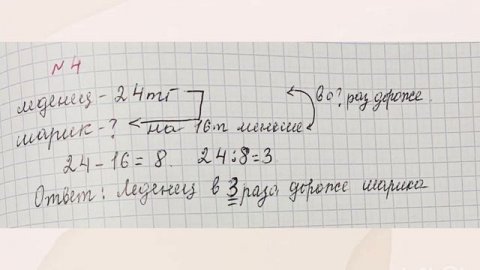 №4
леденец - 24тг
шарик - ? на 16т меньше
во ? раз дороже
24 - 16 = 8. 24 : 8 = 3
Ответ: Леденец в 3 раза дороже шарика